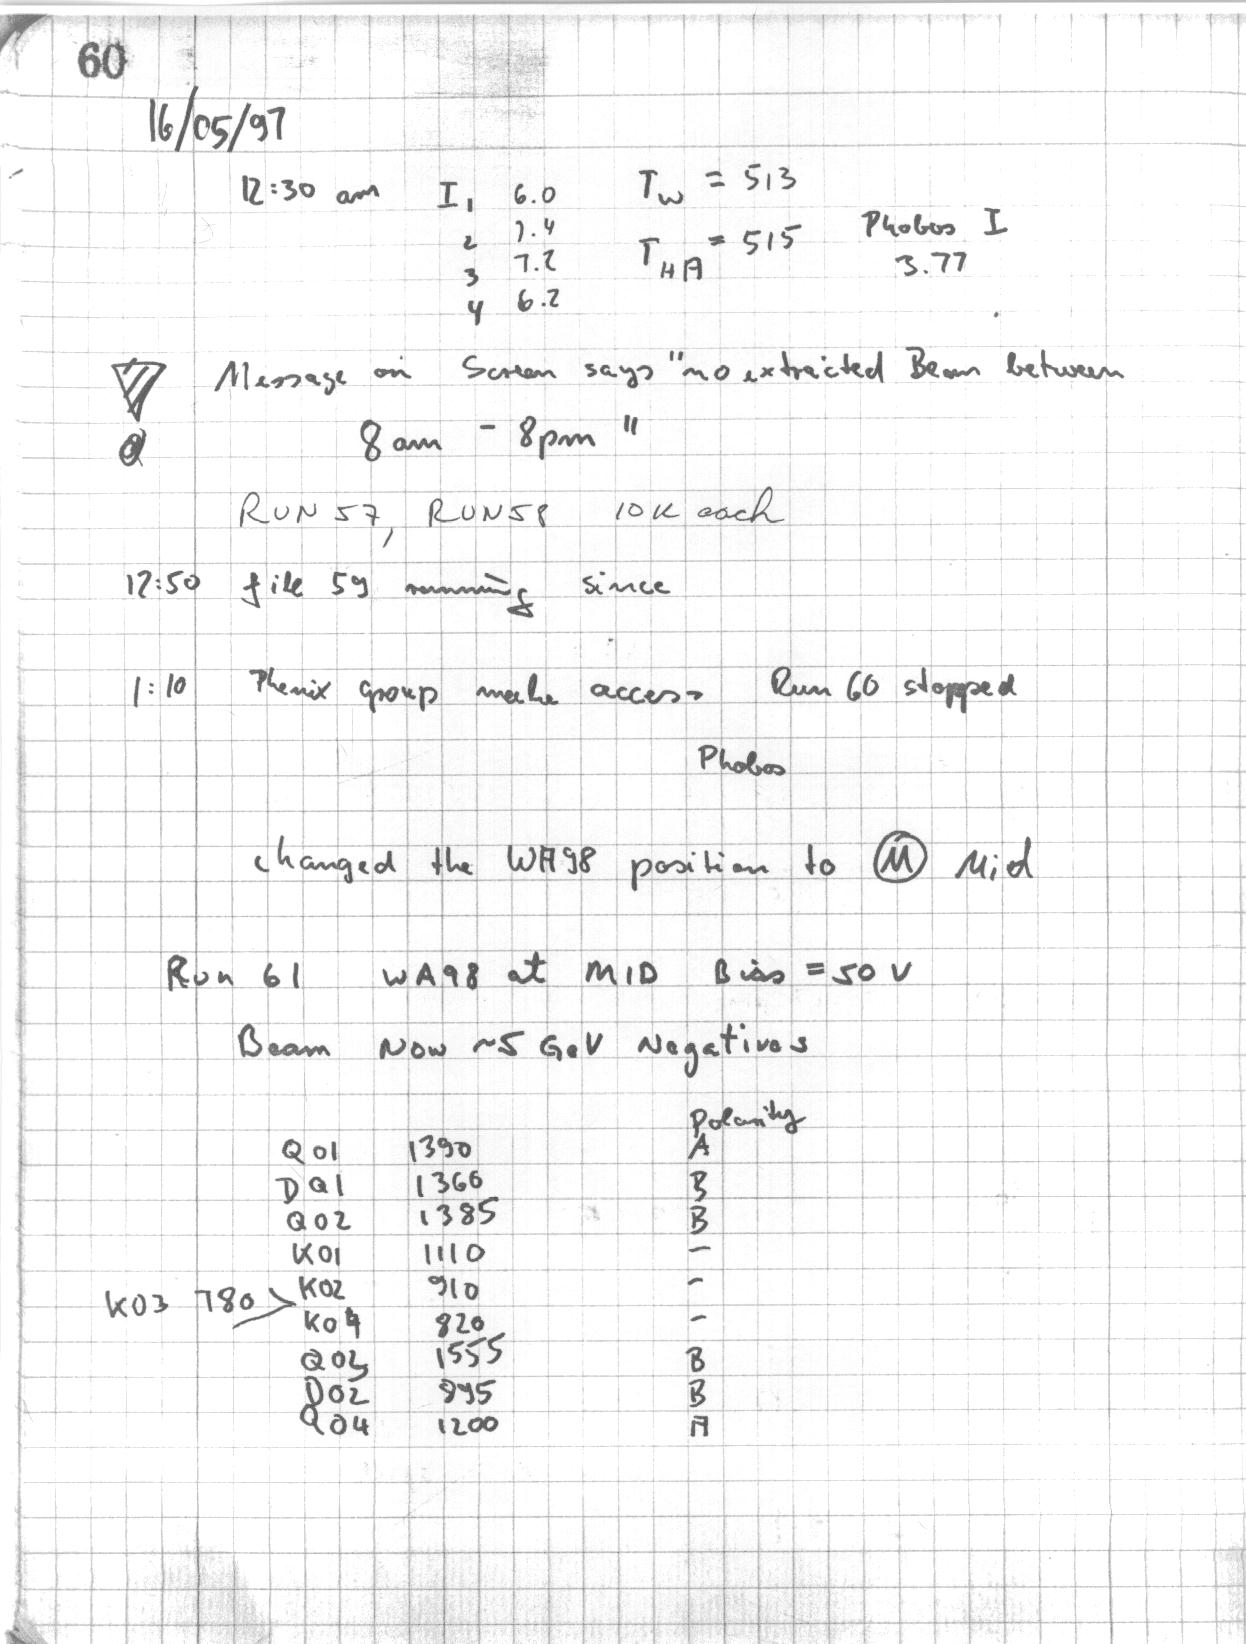 60
16/05/97
12:30 am I1 6.0 TW = 513
2 7.4 THA = 515 Phobos I
3 7.2 3.77
4 6.2
Message on Screen says "no extracted Beam between
8am - 8pm "
RUN 57, RUN 58 10K each
12:50 file 59 running since
1:10 Phenix group make access Run 60 stopped
Phobos
changed the WA98 position to M Mid
Run 61 WA98 at MID Bias = 50 V
Beam Now ~5 GeV Negatives
Polarity
Q01 1390 A
DQ1 1366 B
Q02 1385 B
K01 1110 -
K02 910 -
K03 780
K04 820 -
Q03 1555 B
D02 895 B
Q04 1200 A